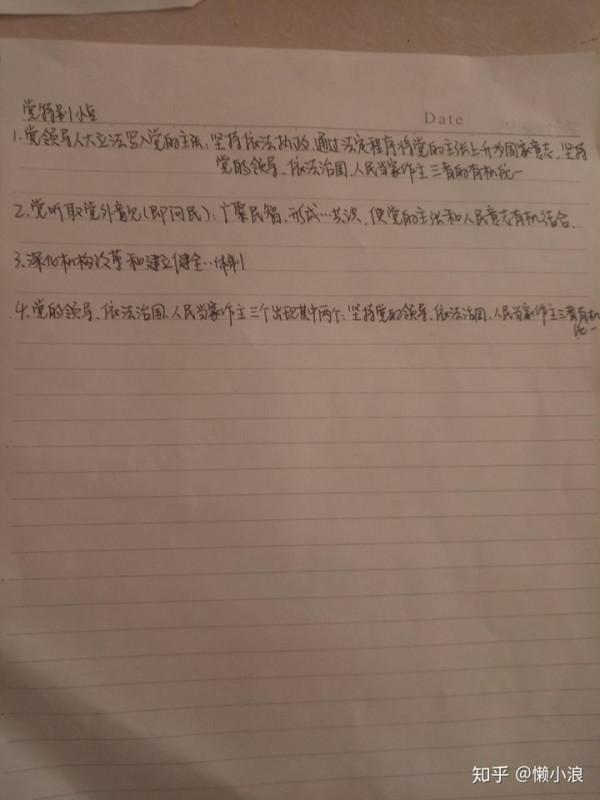 Date
党特别小点
1.党领导人大立法写入党的主张：坚持依法执政，通过法定程序将党的主张上升为国家意志，坚持
党的领导、依法治国、人民当家作主三者的有机统一
2.党听取党外意见(即问民)：广聚民智，形成…共识，使党的主张和人民意志有机结合.
3.深化机构改革和建立健全…体制
4.党的领导、依法治国、人民当家作主三个出现其中两个：坚持党的领导、依法治国、人民当家作主三者有机
统一
知乎 @懒小浪